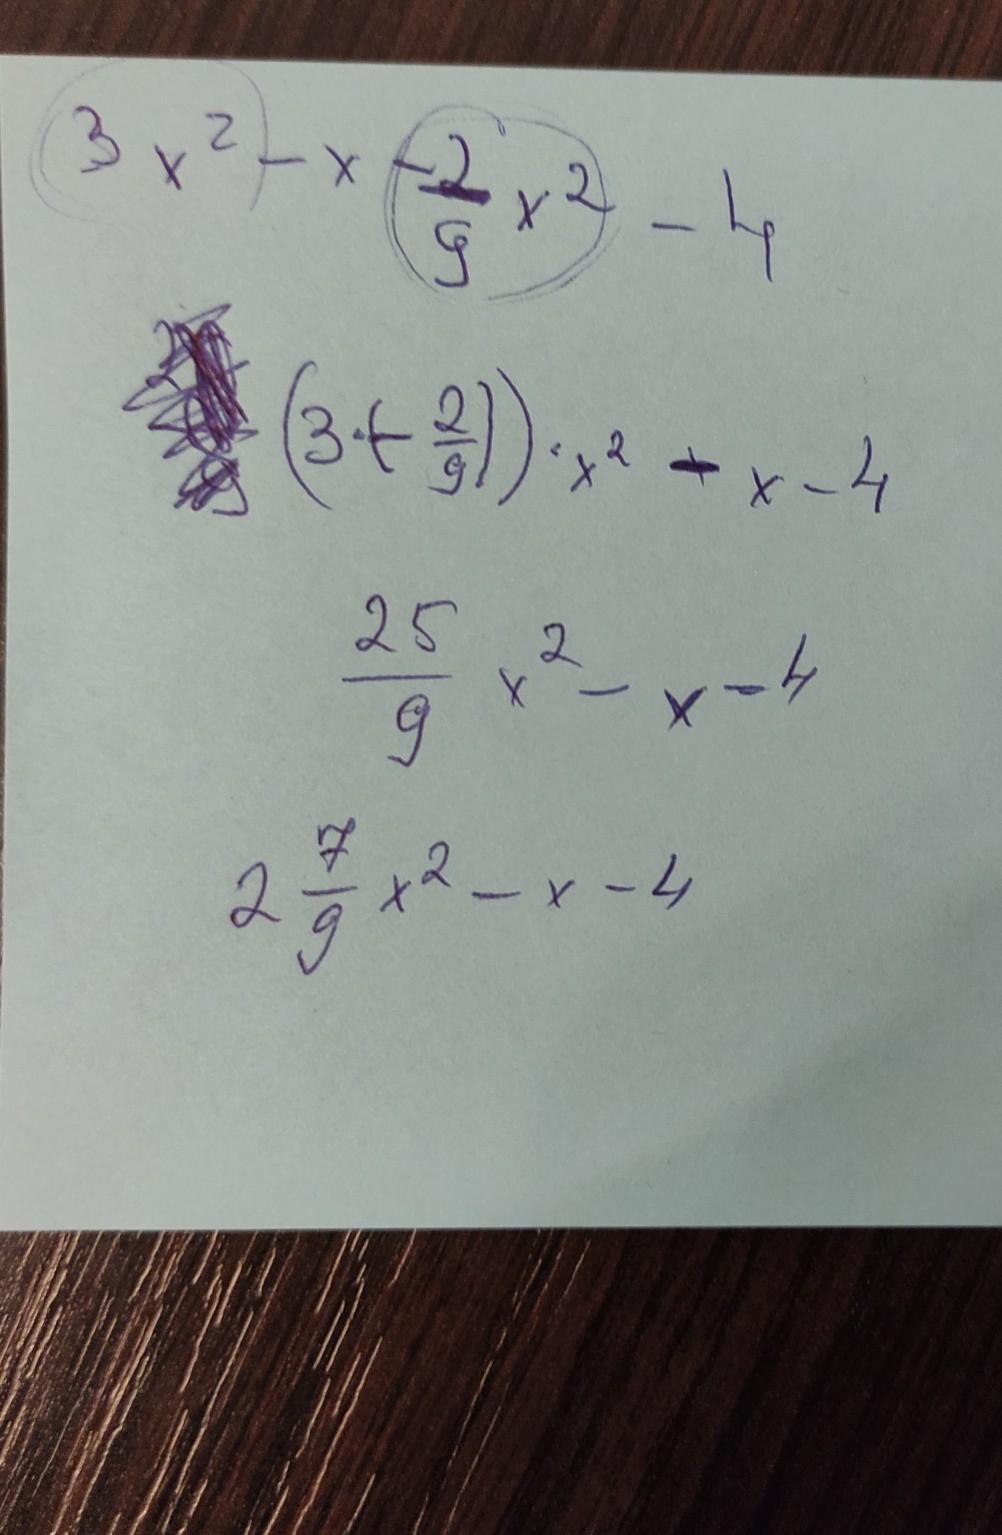 3x² - x - 2/9 x² - 4
(3 + (- 2/9)) · x² - x - 4
25/9 x² - x - 4
2 7/9 x² - x - 4